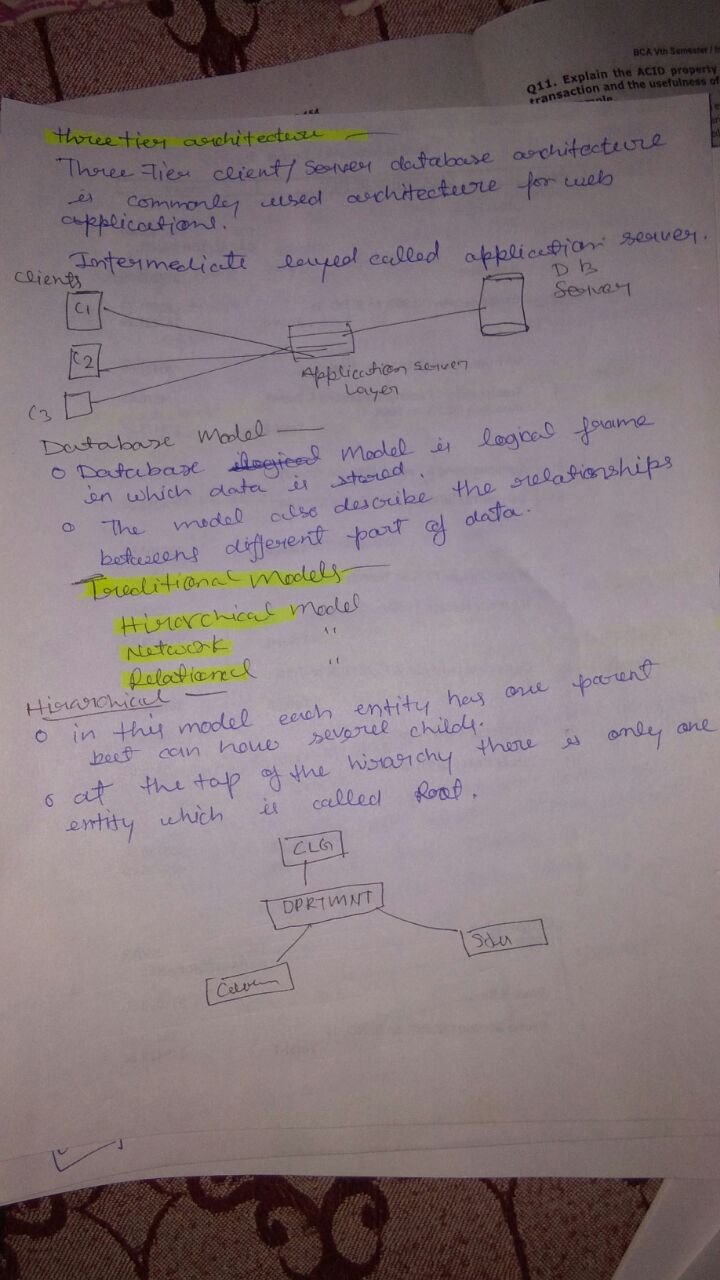 BCA Vth Semester /
Q11. Explain the ACID property
transaction and the usefulness of
three tier architecture —
Three Tier client/Server database architecture
is commonly used architecture for web
applications.
Intermediate layed called application server.
Clients
D B
Server
C1
C2
Application server
Layer
C3
Database Model —
o Database model is logical frame
in which data is stored.
o The model also describe the relationships
betweens different part of data.
Treditional Models —
Hirarchical Model
Network "
Relational "
Hirarchical —
o in this model each entity has one parent
but can have several childs.
o at the top of the hirarchy there is only one
entity which is called Root.
CLG
DPRTMNT